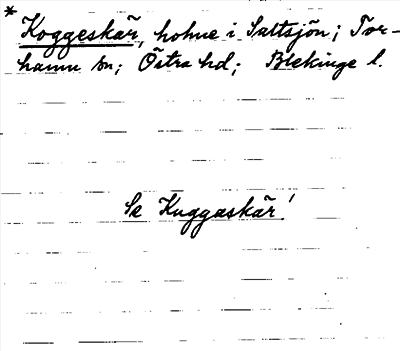 * Koggeskär, holme i Saltsjön; Tor-
hamn sn; Östra hd; Blekinge l.
Se Kuggaskär!